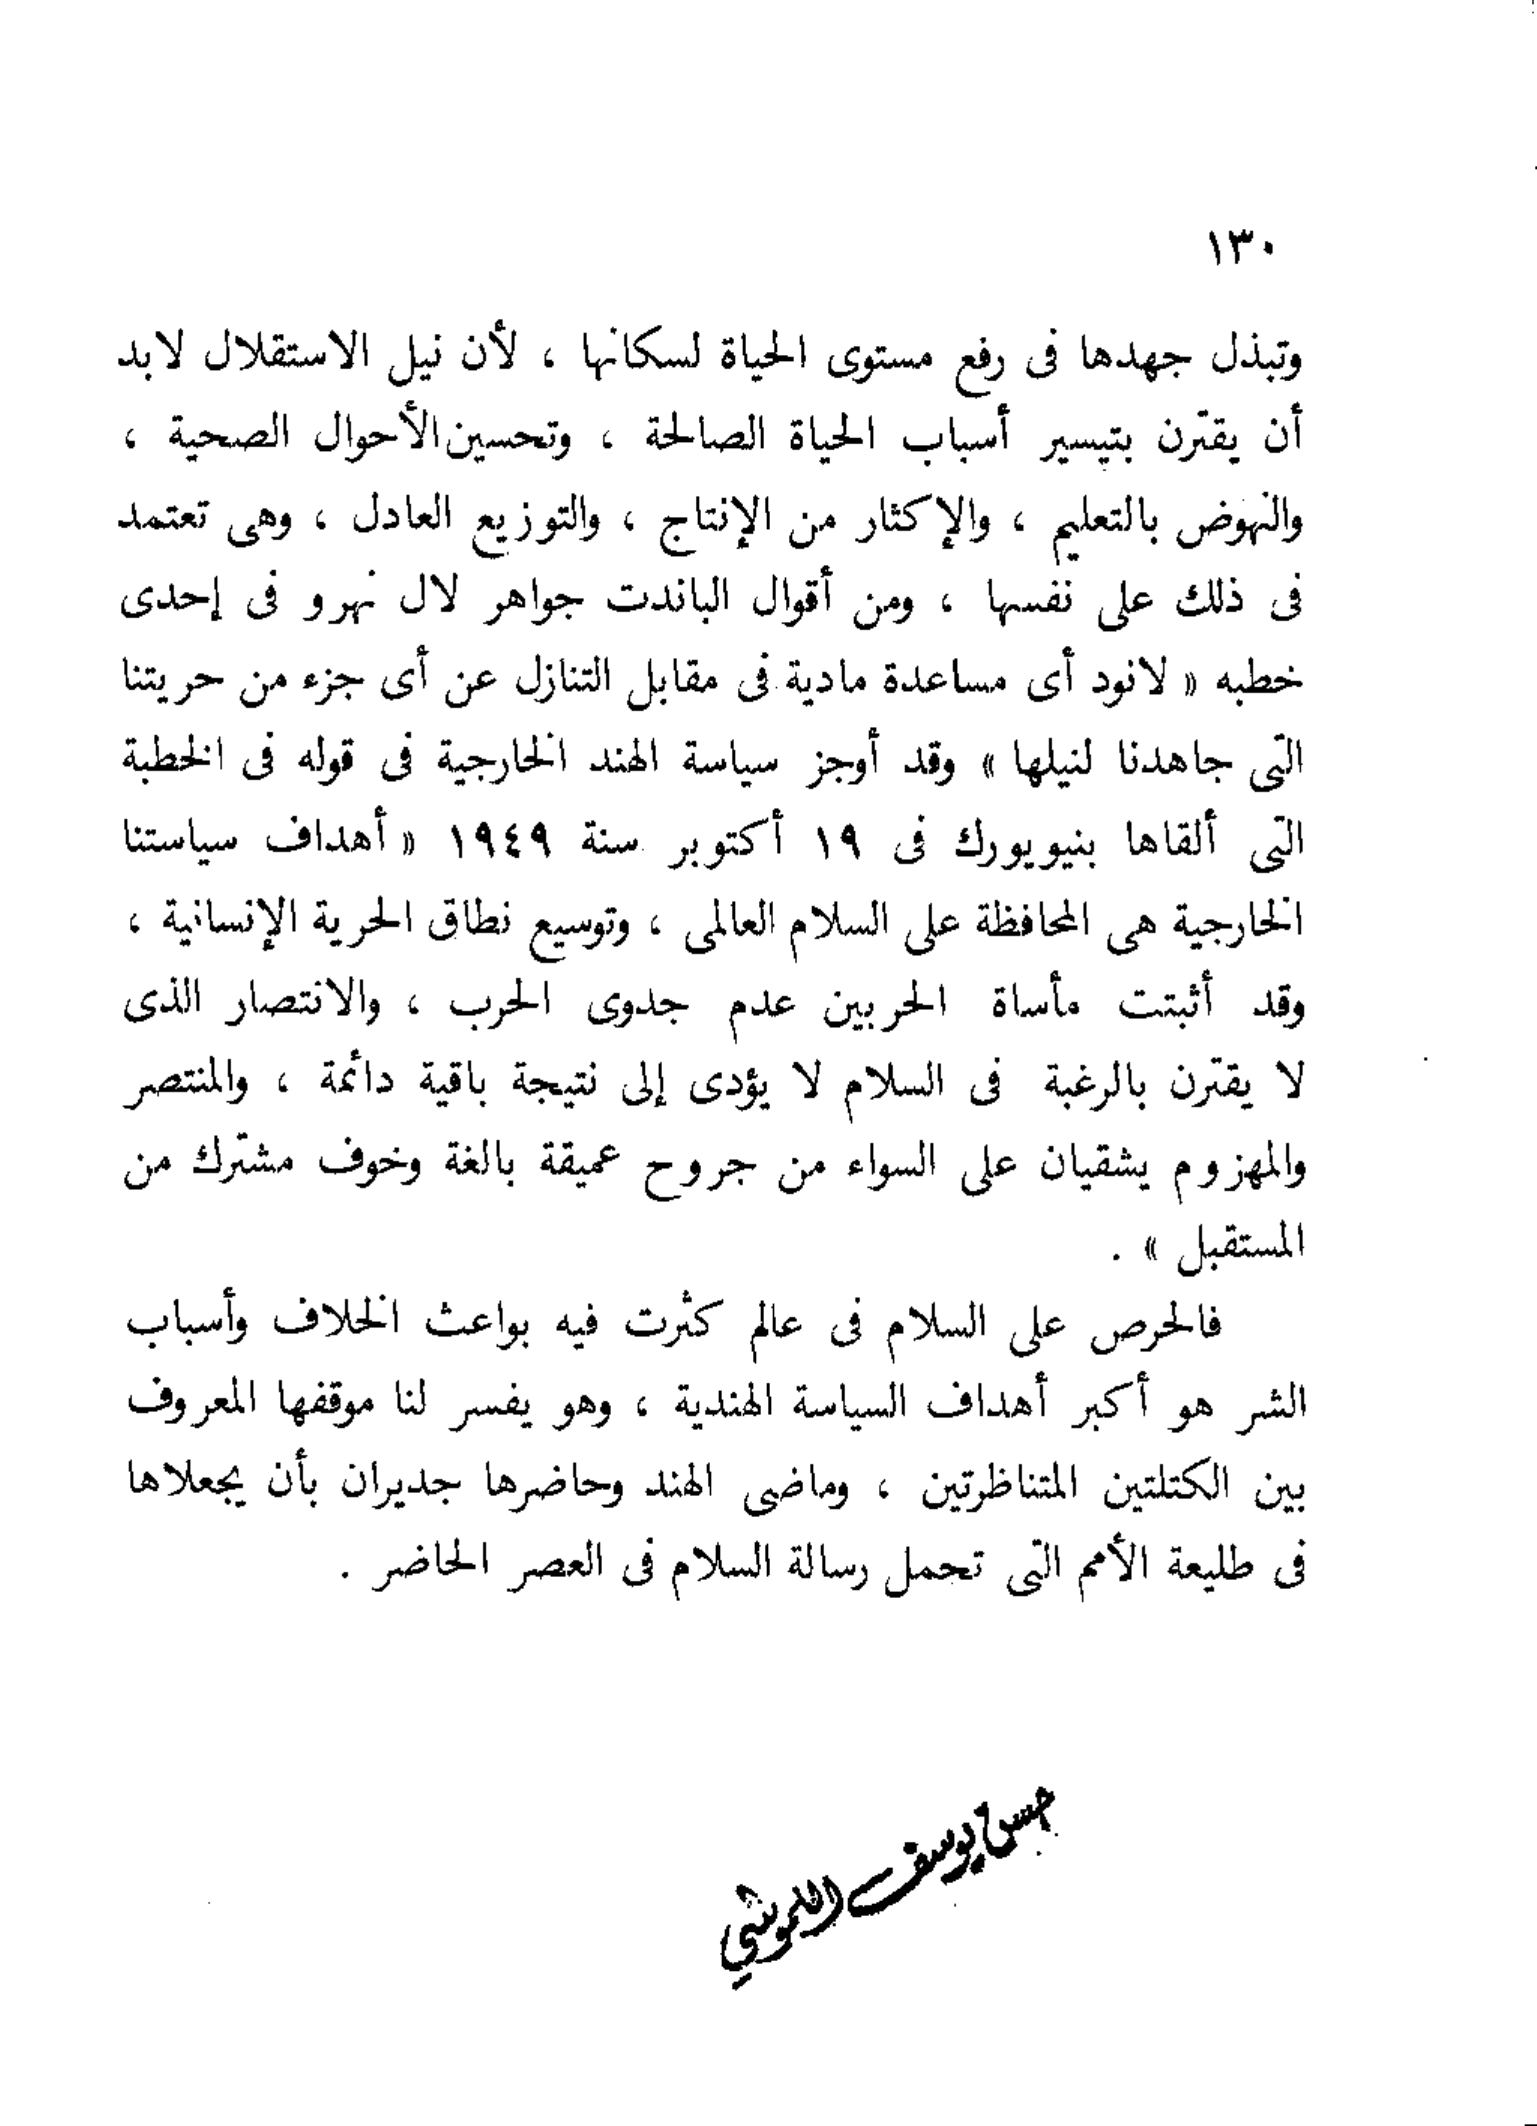 ١٣٠
وتبذل جهدها فى رفع مستوى الحياة لسكانها ، لأن نيل الاستقلال لابد
أن يقترن بتيسير أسباب الحياة الصالحة ، وتحسين الأحوال الصحية ،
والنهوض بالتعليم ، والإكثار من الإنتاج ، والتوزيع العادل ، وهى تعتمد
فى ذلك على نفسها ، ومن أقوال الباندت جواهر لال نهرو فى إحدى
خطبه « لانود أى مساعدة مادية فى مقابل التنازل عن أى جزء من حريتنا
التى جاهدنا لنيلها » وقد أوجز سياسة الهند الخارجية فى قوله فى الخطبة
التى ألقاها بنيويورك فى ١٩ أكتوبر سنة ١٩٤٩ « أهداف سياستنا
الخارجية هى المحافظة على السلام العالمى ، وتوسيع نطاق الحرية الإنسانية ،
وقد أثبتت مأساة الحربين عدم جدوى الحرب ، والانتصار الذى
لا يقترن بالرغبة فى السلام لا يؤدى إلى نتيجة باقية دائمة ، والمنتصر
والمهزوم يشقيان على السواء من جروح عميقة بالغة وخوف مشترك من
المستقبل » .
فالحرص على السلام فى عالم كثرت فيه بواعث الخلاف وأسباب
الشر هو أكبر أهداف السياسة الهندية ، وهو يفسر لنا موقفها المعروف
بين الكتلتين المتناظرتين ، وماضى الهند وحاضرها جديران بأن يجعلاها
فى طليعة الأمم التى تحمل رسالة السلام فى العصر الحاضر .
حسن يوسف